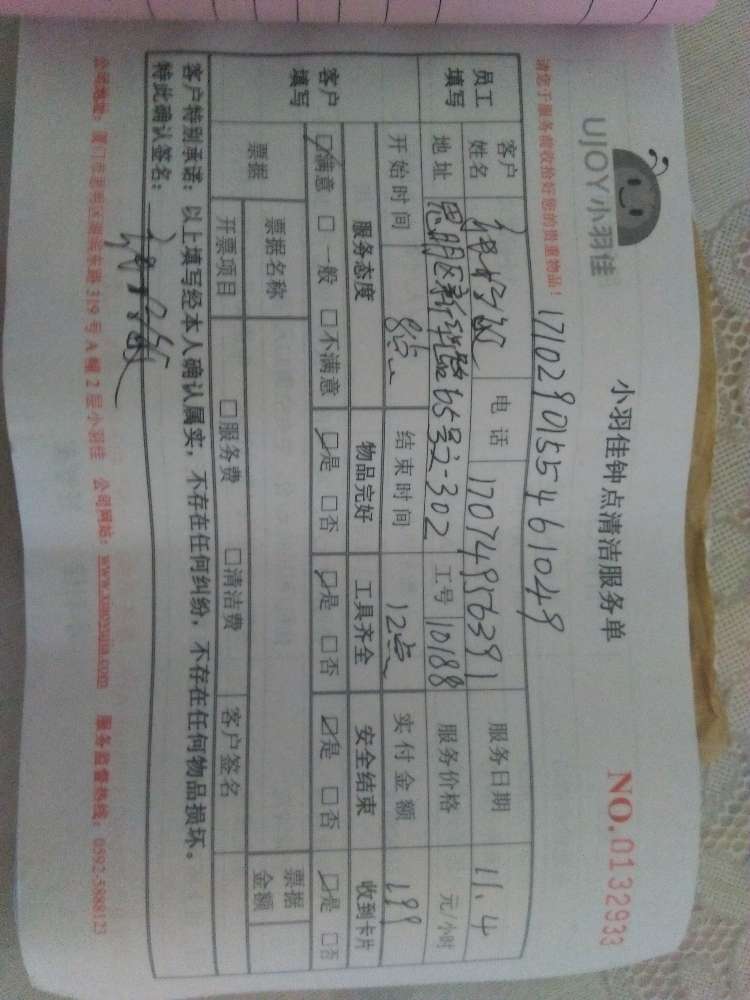 UJOY小羽佳
小羽佳钟点清洁服务单
NO.0132933
请您于服务前收拾好您的贵重物品！
1710290155461049
员工填写
客户姓名 电话 17074956391 服务日期 11.4
地址 思明区 302 工号 10188 服务价格 元/小时
开始时间 8点 结束时间 12点 实付金额 199
客户填写
服务态度 物品完好 工具齐全 安全结束 收到卡片
☑满意 □一般 □不满意 ☑是 □否 ☑是 □否 ☑是 □否 ☑是 □否
票据 票据名称 票据金额
开票项目 □服务费 □清洁费 客户签名
客户特别承诺：以上填写经本人确认属实，不存在任何纠纷，不存在任何物品损坏。
特此确认签名：
公司地址：厦门市思明区湖滨东路319号A幢2层小羽佳 公司网站：www.xiaoyujia.com 服务监督热线：0592-5888123